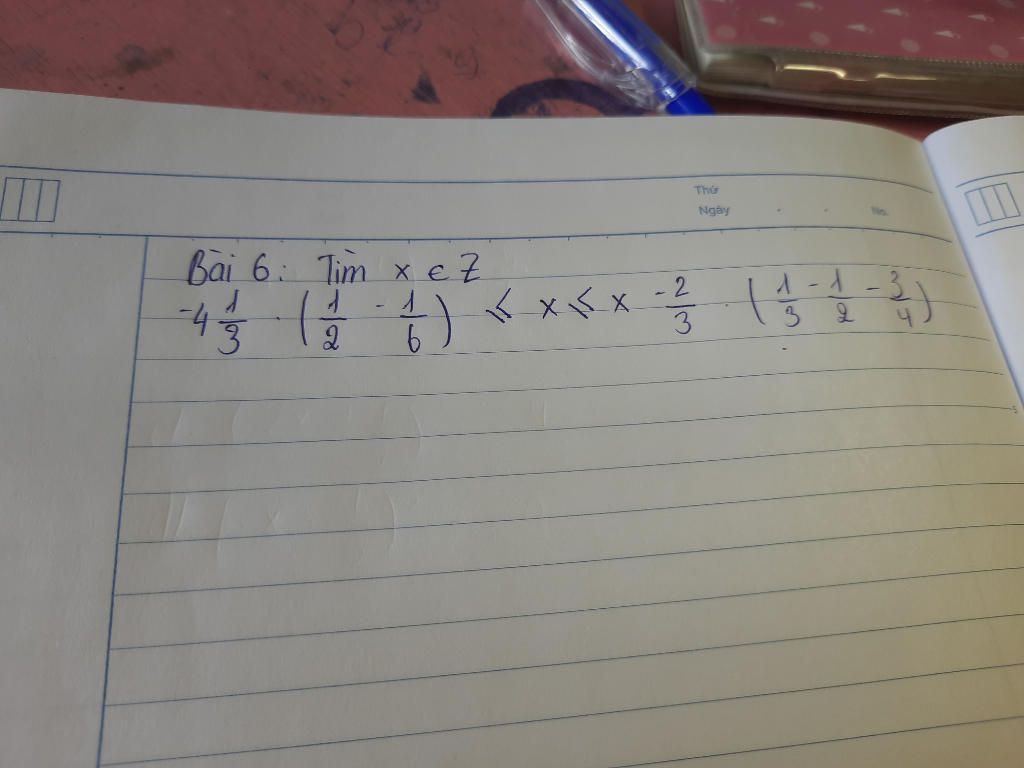 Thứ
Ngày . . No.
Bài 6: Tìm x ∈ Z
-4 1/3 . (1/2 - 1/6) ≤ x ≤ x -2/3 . (1/3 - 1/2 - 3/4)